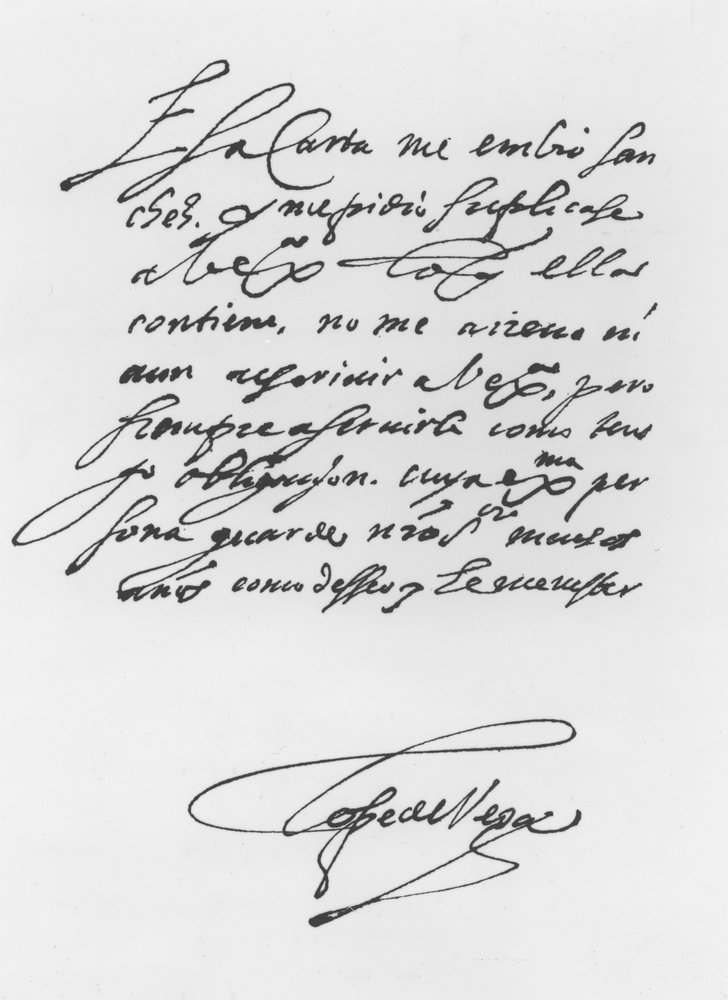 Esta Carta me embio San
chez. y me pidio suplicase
a Vex.ª lo q ella
contiene. no me atreuo ni
aun a escriuir a Vex.ª, pero
siempre a seruirle como ten
go obligaçion. cuya ex.ma per
sona guarde nro s.or muchos
años como desseo y
Lope de Vega